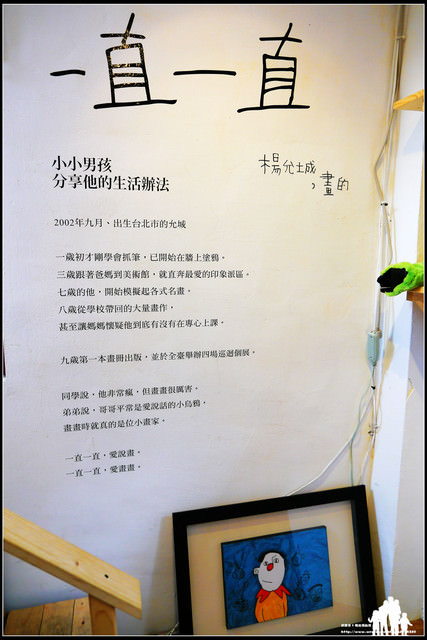 一直一直
楊允城，畫的
小小男孩
分享他的生活辦法
2002年九月、出生台北市的允城
一歲初才剛學會抓筆，已開始在牆上塗鴉。
三歲跟著爸媽到美術館，就直奔最愛的印象派區。
七歲的他，開始模擬起各式名畫。
八歲從學校帶回的大量畫作，
甚至讓媽媽懷疑他到底有沒有在專心上課。
九歲第一本畫冊出版，並於全臺舉辦四場巡迴個展。
同學說，他非常瘋，但畫畫很厲害。
弟弟說，哥哥平常是愛說話的小烏鴉，
畫畫時就真的是位小畫家。
一直一直，愛說畫。
一直一直，愛畫畫。